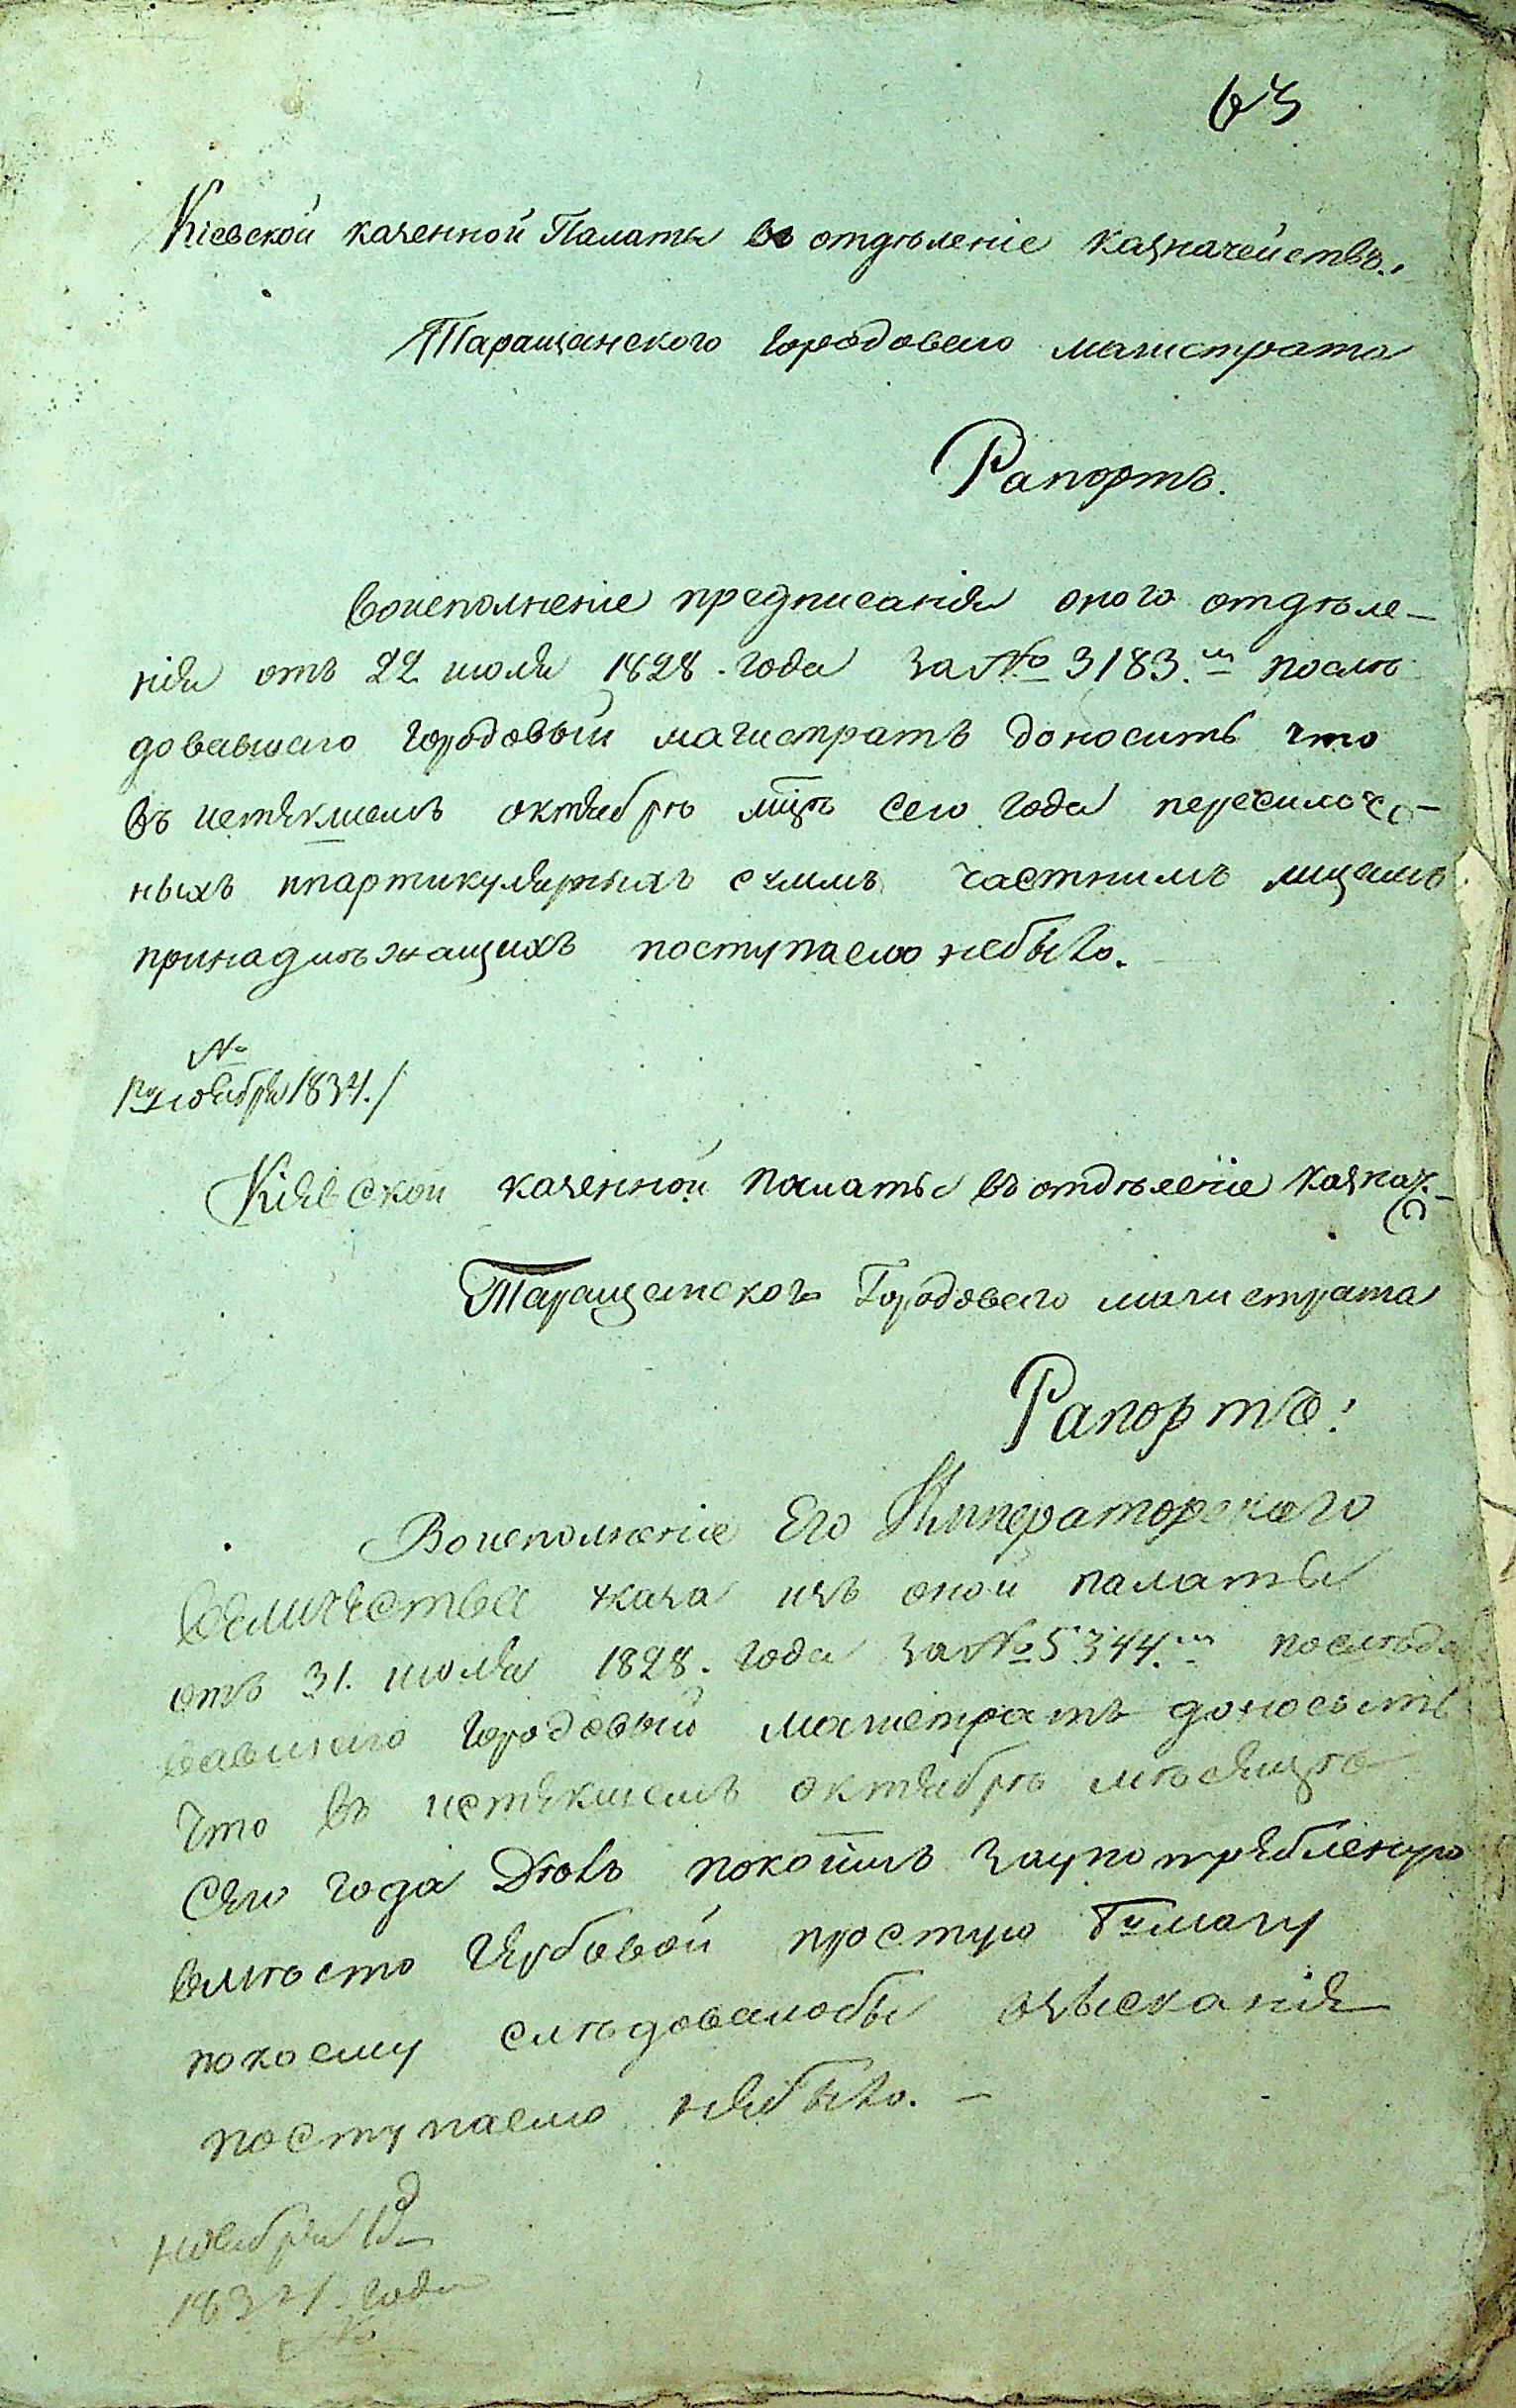 63
Кіевской казенной Палаты въ отдѣленіе казначействъ.
Таращанского городоваго магистрата
Рапортъ.
Воисполненіе предписанія оного отдѣле-
нія отъ 22 июля 1828. года за № 3183.м послѣ
довавшаго городовый магистратъ доноситъ что
въ истекшемъ октябрѣ мцѣ сего года пересилочо-
ныхъ ипартикулярныхъ суммъ частнимъ лицамъ
принадлѣжащихъ поступаемо небыло.
№
1го ноября 1834./
Кіевской казенной палаты въ отдѣленіе казнач.
Таращанского Городоваго магистрата
Рапортъ:
Воисполненіе Его Императорского
Величества указа изъ оной палаты
отъ 31. июля 1828. года за № 5344.м послѣдо
вавшаго городовый магистратъ доноситъ
что въ истекшемъ октябрѣ мѣсяцѣ
сего года Дѣлъ покоимъ заупотребленую
вмѣсто гербовой простую бумагу
покоему слѣдовалобы взысканія
поступаемо небыло. -
ноября 1д
1834. года
№